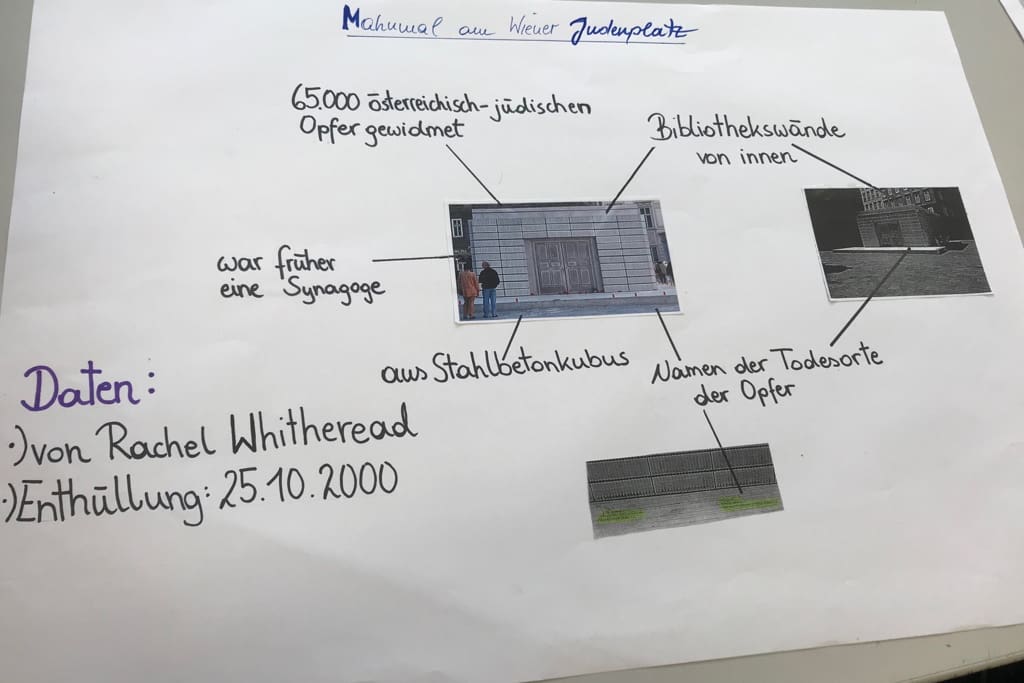 Mahnmal am Wiener Judenplatz
65.000 österreichisch-jüdischen
Opfer gewidmet
Bibliothekswände
von innen
war früher
eine Synagoge
aus Stahlbetonkubus
Namen der Todesorte
der Opfer
Daten:
·) von Rachel Whitheread
·) Enthüllung: 25.10.2000